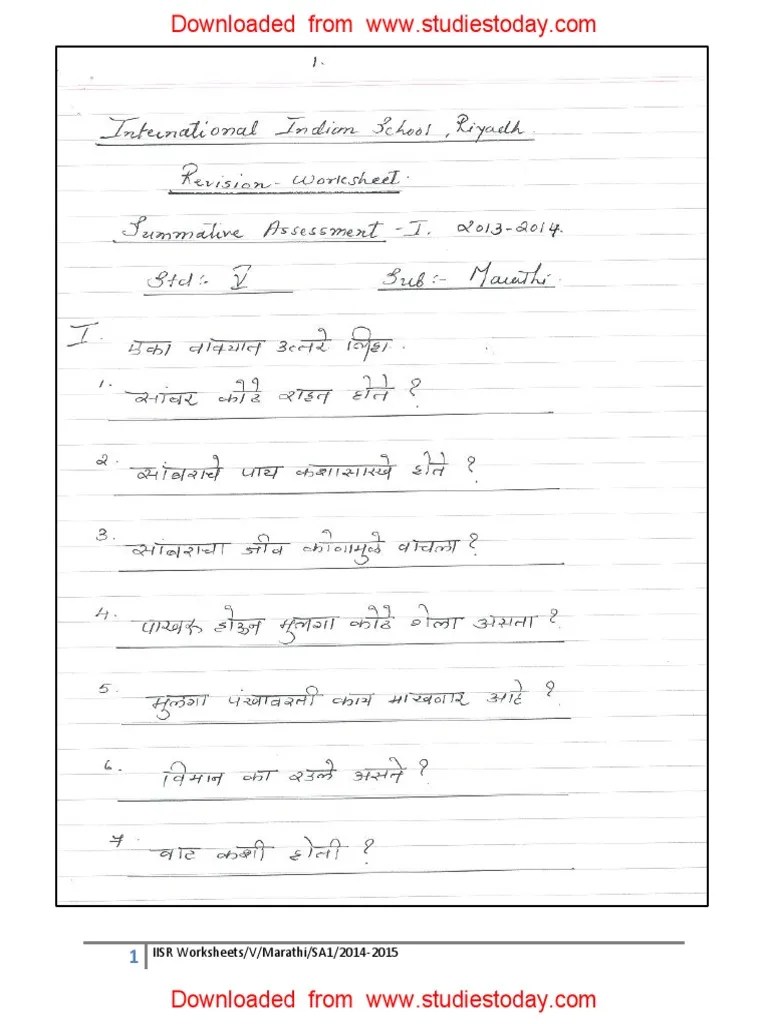 Downloaded from www.studiestoday.com
1.
International Indian School, Riyadh.
Revision-Worksheet.
Summative Assessment-I. 2013-2014.
Std:- V Sub:- Marathi.
I. एका वाक्यात उत्तरे लिहा.
1. सांबर कोठे राहत होते ?
2. सांबराचे पाय कशासारखे होते ?
3. सांबराचा जीव कोणामुळे वाचला ?
4. पाखरू होऊन मुलगा कोठे गेला असता ?
5. मुलगा पंखावरती काय माखणार आहे ?
6. विमान का रडले असते ?
7. वाट कशी होती ?
1 IISR Worksheets/V/Marathi/SA1/2014-2015
Downloaded from www.studiestoday.com